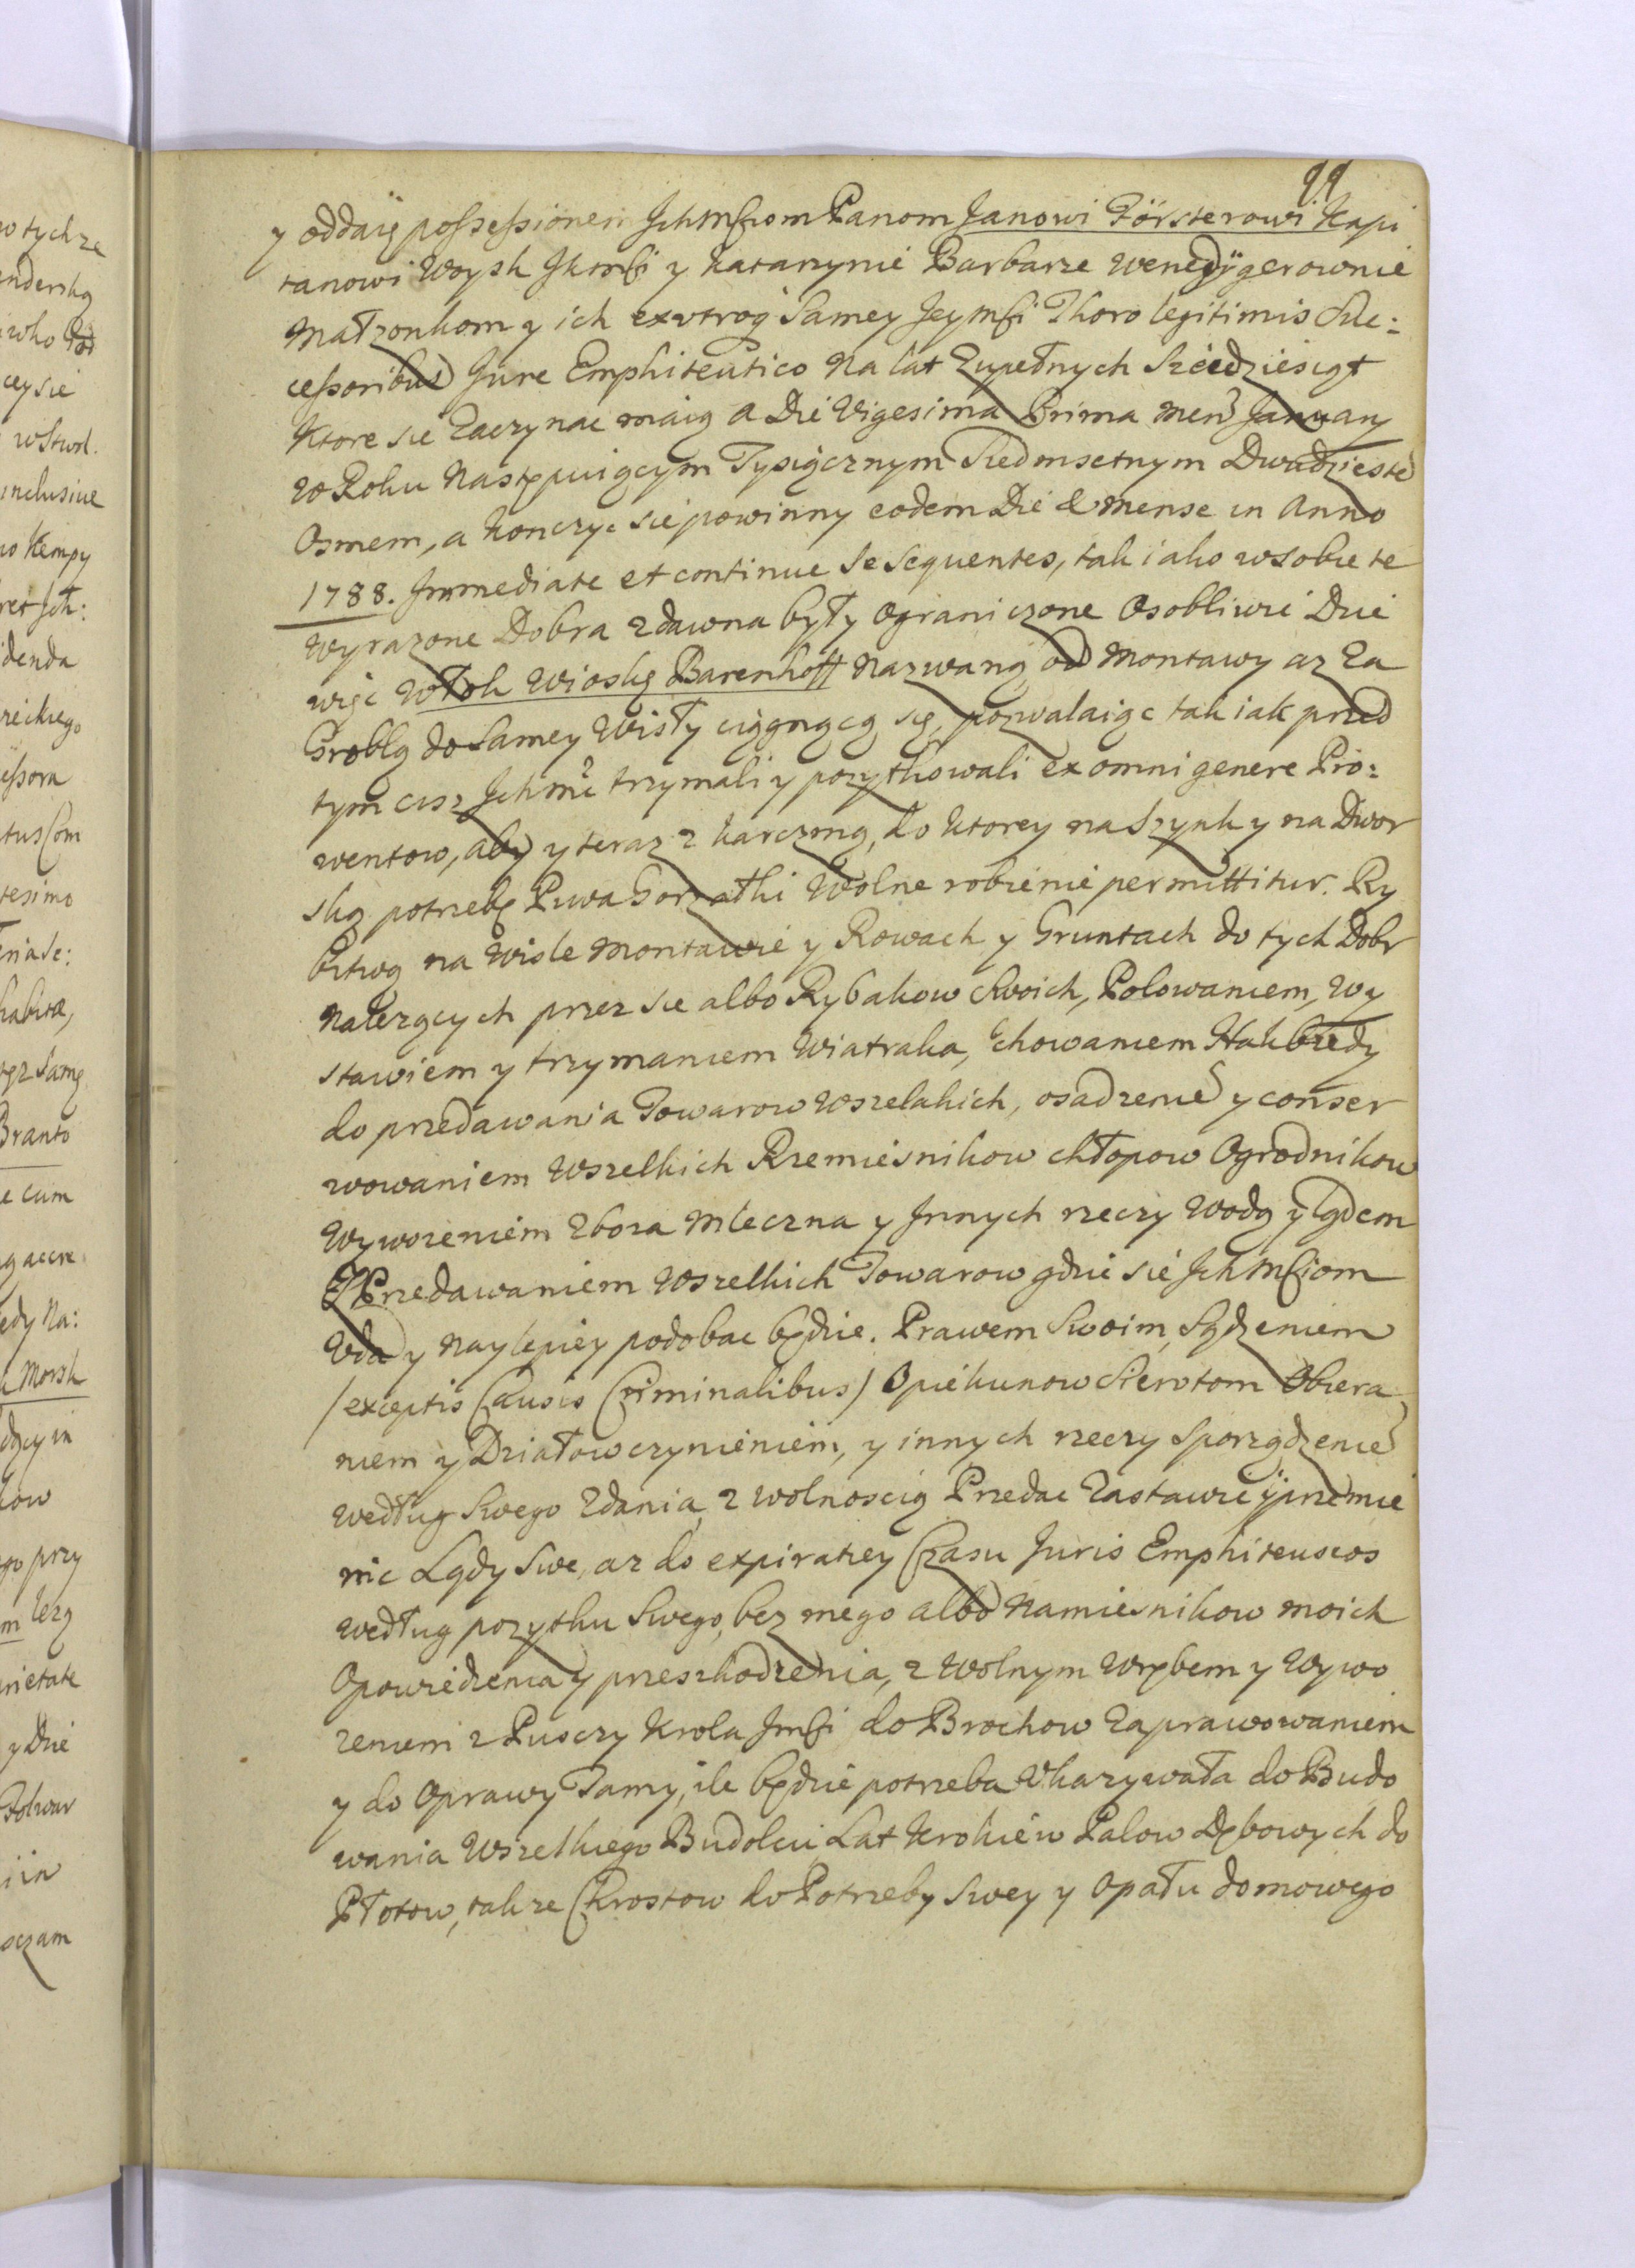 99
y oddaię possessionem Jchmściom Panom Janowi Försterowi Kapi
tanowi Woysk Jkmści y Katarzynie Barbarze Wenedÿgerownie
Małzonkom y ich ex utroq Samey Jeymści Thoro legitimis Suc:
cessoribus Jure Emphiteutico na lat Zupełnych Sześdziesiąt
Ktore sie Zaczynac maią a Die Vigesima Prima Mens January
w Roku Następuiącym Tysiącznym Siedmsetnym Dwudzieste
Osmem, a konczyc sie powinny eodem Die & mense in Anno
1788. Immediate et continue se sequentes, tak iako w sobie te
Wyrazone Dobra zdawna były Ograniczone Osobliwie Die
więc Włok Wioskę Barenhoff Nazwaną od Montawy az Za
Groblą do Samey Wisły ciągnącą się, pozwalaiąc tak iak przed
tym cisz Jchmć trzymali y pozytkowali ex omni genere Pro:
wentow, aby y teraz z karczmą, do ktorey na Szynk y na Dwor
ską potrzebę Piwa Gorzałki Wolne robienie permittitur. Ry
bitwą na Wisle Montawie y Rowach y Gruntach do tych Dobr
Nalezących przez sie albo Rybakow Swoich, Polowaniem, Wy
stawiem y trzymaniem Wiatraka, Chowaniem Hakbudy
do przedawania Towarow Wszelakich, osadzenie y conser
wowaniem Wszelkich Rzemiesnikow chłopow Ogrodnikow
Wywozeniem Zboza Mleczna y Jnnych rzeczy Wodą y Lądem
Przedawaniem Wszelkich Towarow gdzie sie Jchmściom
Uda y naylepiey podobac będzie. Prawem Swoim, Sądzeniem
/exceptis Causis Criminalibus/ Opiekunow Sierotom Obiera
niem y Działow czynieniem, y innych rzeczy Sporządzenie
według Swego Zdania, z wolnoscią Przedac Zastawic y przemie
nic Lądy Swe, az do expiratiey Czasu Juris Emphiteuseos
według pozytku Swego, bez mego albo Namiesnikow moich
Opowiedzenia y przeszkodzenia, z Wolnym Wrębem y Wywo
zeniem z Pusczy Krola Jmści do Brochow Zaprawowaniem
y do Oprawy Tamy, ile będzie potrzeba Ukazywała do Budo
wania Wszelkiego Budolcu Lat Krokiew Palow Dębowych do
Płotow, takze Chrostow do Potrzeby Swey y Opału domowego